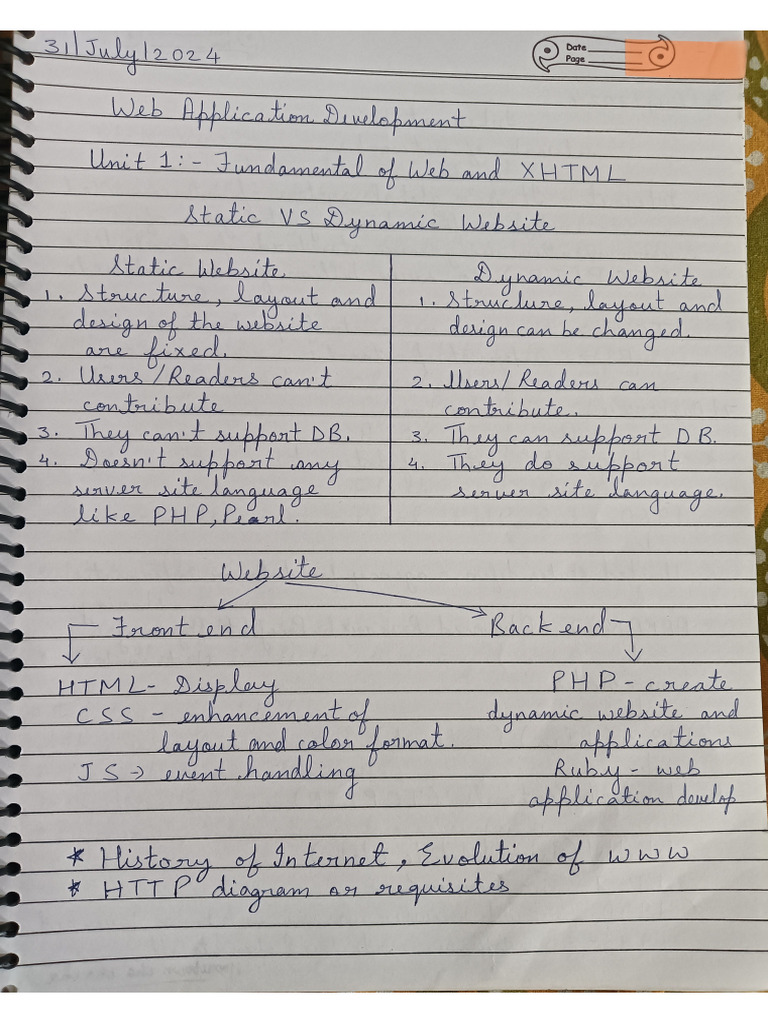 31/July/2024
Date
Page
Web Application Development
Unit 1:- Fundamental of Web and XHTML
Static VS Dynamic Website
Static Website
1. Structure, layout and
design of the website
are fixed.
2. Users/Readers can't
contribute
3. They can't support DB.
4. Doesn't support any
server site language
like PHP, Pearl.
Dynamic Website
1. Structure, layout and
design can be changed.
2. Users/Readers can
contribute.
3. They can support DB.
4. They do support
server site language.
Website
Front end
Back end
HTML- Display
CSS - enhancement of
layout and color format.
JS → event handling
PHP - create
dynamic website and
applications
Ruby - web
application develop
* History of Internet, Evolution of WWW
* HTTP diagram or requisites